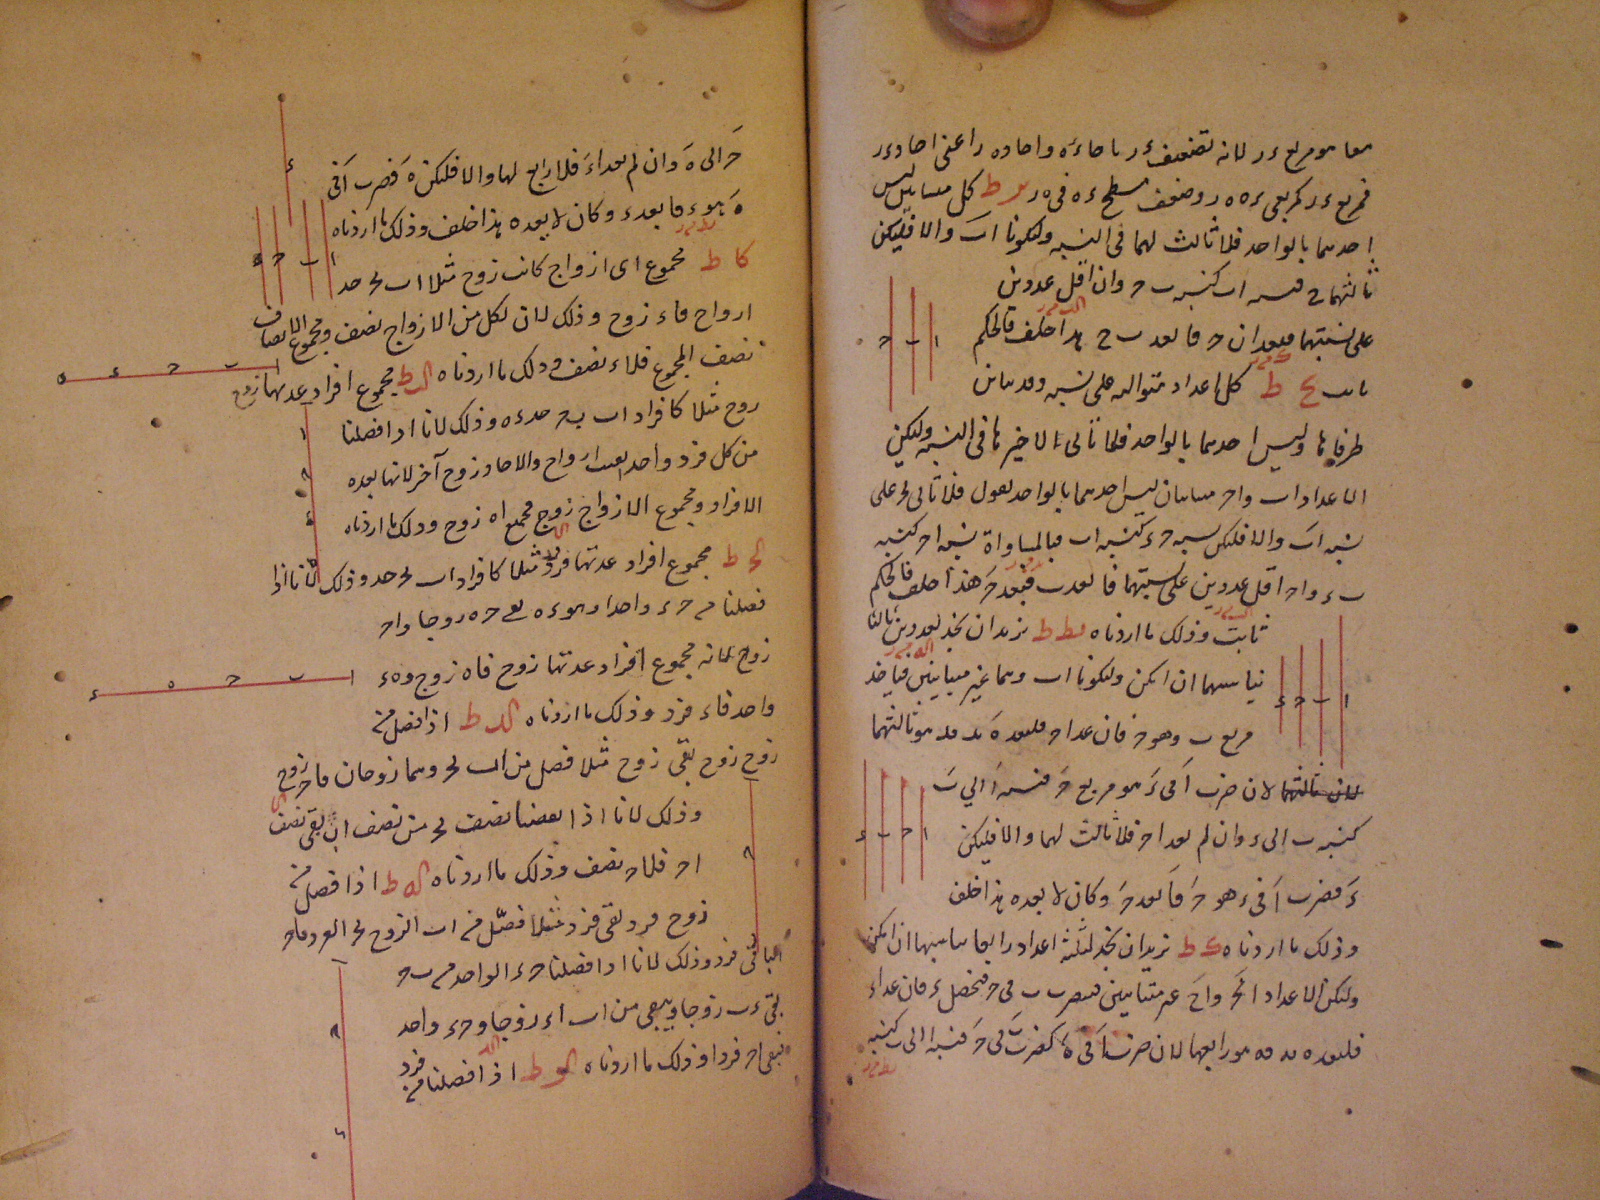 معا هو مربع ءر لانه تضعيف ءر باحاد ءه واحاد ه ر اعنى احاد ءر
فمربع ءر كمربعى ءه ه ر وضعف مسطح ءه فى ه ر ط كل متباينين ليس
احدهما بالواحد فلا ثالث لهما فى النسبه وليكونا اب والا فليكن
ثالثهما ح فنسبه اب كنسبه ب ح وان اقل عددين
على نسبتهما فيعدان ح فا يعد ب ح هذا خلف فالحكم
ثابت يح ط كل اعداد متواليه على نسبه وقد تباين
طرفاها وليس احدهما بالواحد فلا تالى الاخيرها فى النسبه وليكن
الاعداد اب واح متباينان ليس احدهما بالواحد نقول فلا تالى لح على
نسبه اب والا فليكن نسبه ح ء كنسبه اب فبالمساواة نسبه اح كنسبه
ب ء واح اقل عددين على نسبتهما فا يعد ب فيعد ح هذا خلف فالحكم
ثابت وذلك ما اردناه يط ط نريد ان نجد لعددين ثالثا
يناسبهما ان امكن وليكونا اب وهما غير متباينين فياخذ
مربع ب وهو ح فان عد ا ح فليعده بد فد هو ثالثهما
لان ضرب ا فى ء هو مربع ح فنسبه ا الى ب
كنسبه ب الى ء وان لم يعد ا ح فلا ثالث لهما والا فليكن
ء فضرب ا فى ء هو ح فا يعد ح وكان لا يعده هذا خلف
وذلك ما اردناه ك ط نريد ان نجد لثلثة اعداد رابعا يناسبها ان امكن
وليكن الاعداد ا ب ح وا ح غير متباينين فنضرب ب فى ح فيحصل ء فان عد ا ء
فليعده به فه هو رابعها لان ضرب ا فى ه كضرب ب فى ح فنسبه ا الى ب كنسبه
ح الى ه وان لم يعد ا ء فلا رابع لها والا فليكن ه فضرب ا فى
ه هو ء فا يعد ء وكان لا يعده هذا خلف وذلك ما اردناه
كا ط مجموع اى ازواج كانت زوج مثلا اب بح حد
ازواج فاء زوج وذلك لان لكل من الازواج نصف ومجموع الانصاف
نصف المجموع فلاء نصف وذلك ما اردناه كب ط مجموع افراد عدتها زوج
زوج مثلا كافراد اب بح حد ءه وذلك لانا اذا فصلنا
من كل فرد واحد بقيت ازواج والاحاد زوج آخر لانها بعده
الافراد ومجموع الازواج زوج فجميع اه زوج وذلك ما اردناه
كح ط مجموع افراد عدتها فرد فرد مثلا كافراد اب بح حد وذلك لانا اذا
فصلنا من ح ء واحدا وهو ءه بقى ح ه زوجا واح
زوج لانه مجموع افراد عدتها زوج فاه زوج وه ء
واحد فاء فرد وذلك ما اردناه كد ط اذا فصل من
زوج زوج بقى زوج مثلا فصل من اب بح وهما زوجان فاح زوج
وذلك لانا اذا نقصنا نصف بح من نصف اب بقى نصف
اح فلاح نصف وذلك ما اردناه كه ط اذا فصل من
زوج فرد بقى فرد مثلا فصل من اب الزوج بح الفرد فاح
الباقى فرد وذلك لانا اذا فصلنا ح ء الواحد من ب ح
بقى ءب زوجا ويبقى من اب اء زوجا وح ء واحد
فيبقى اح فردا وذلك ما اردناه كو ط اذا فصلنا من فرد